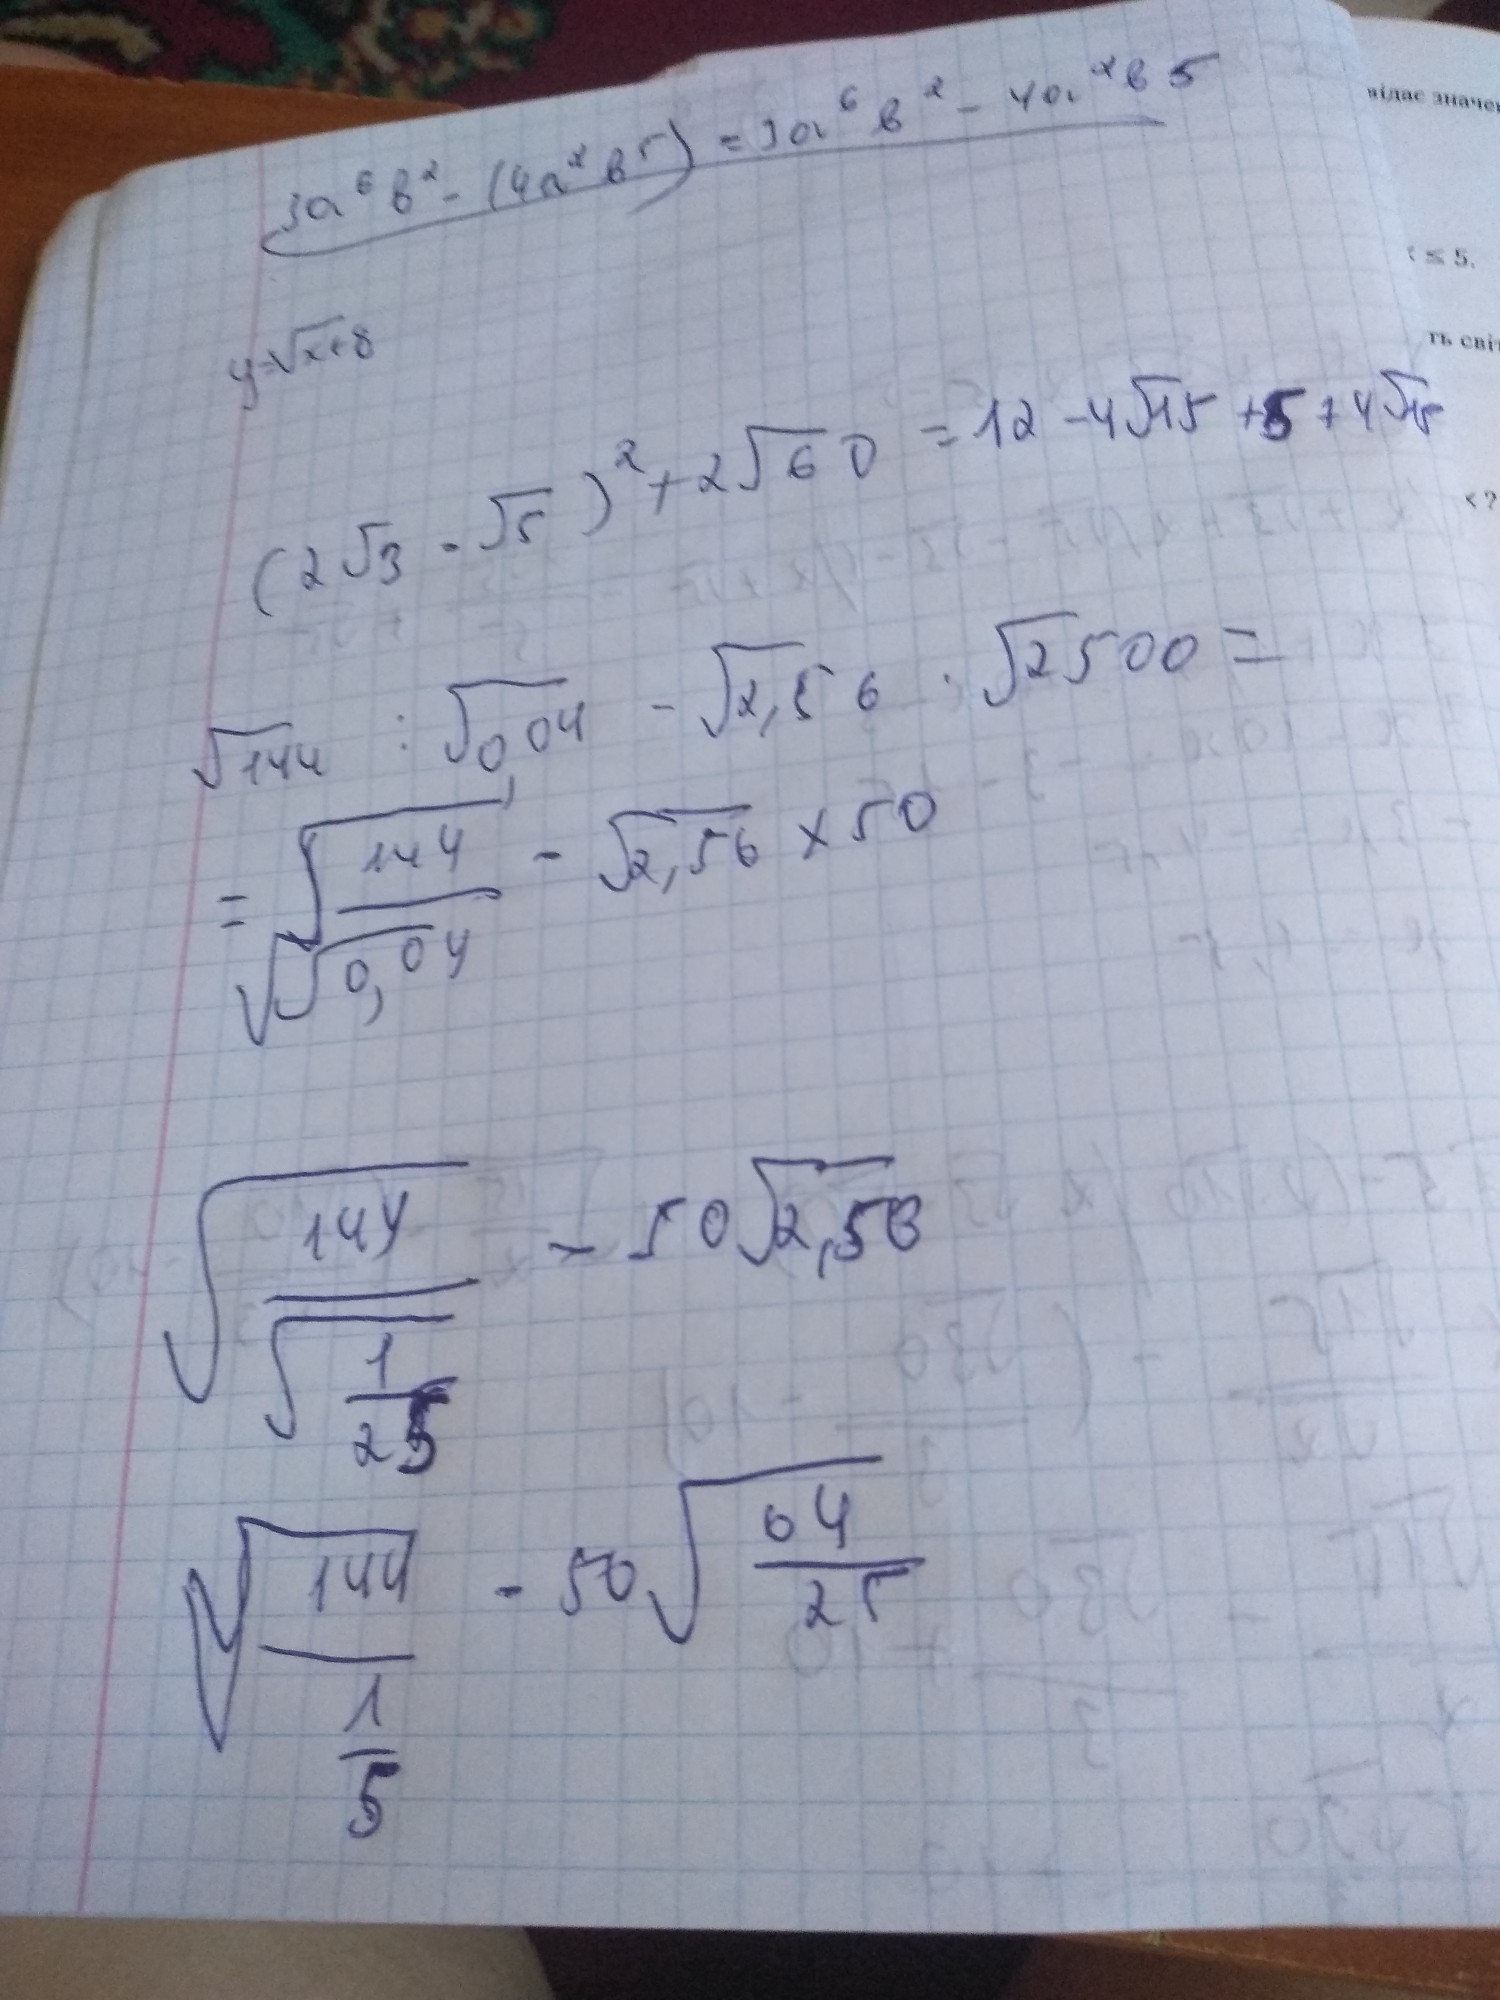 3a⁶b² - (4a²b⁵) = 3a⁶b² - 4a²b5
y=√x+8
(2√3 - √5)² + 2√60 = 12 - 4√15 + 5 + 4√15
√144 : √0,04 - √2,56 · √2500 =
= √(144/√0,04) - √2,56 × 50
√(144/√(1/25)) - 50√2,56
√(144/(1/5)) - 50√(64/25)
відає значен
≤ 5.
ть світ
< ?